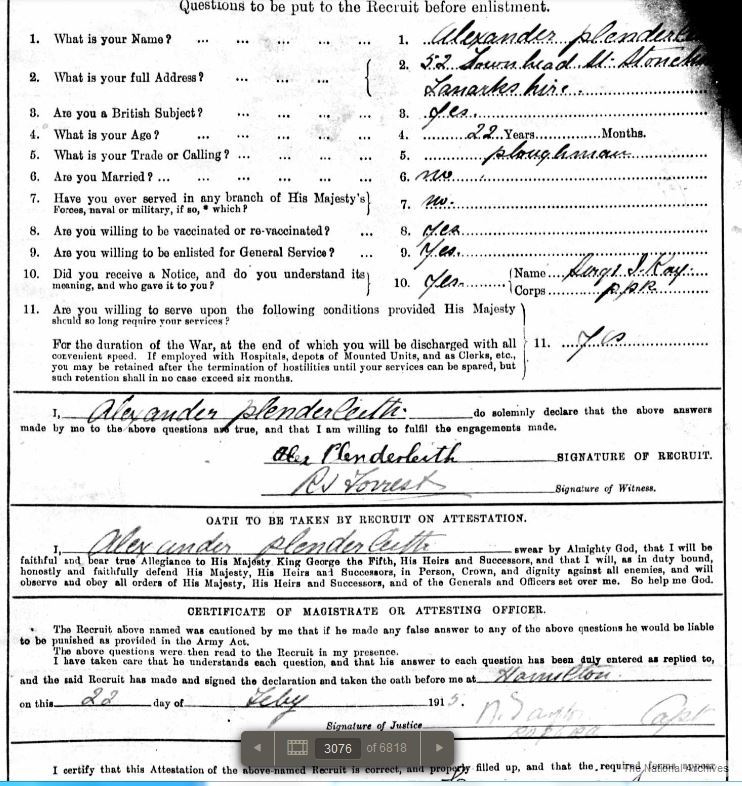 Questions to be put to the Recruit before enlistment.
1. What is your Name? ... ... ... ... 1. Alexander plenderlei
2. What is your full Address? ... ... ... 2. 52 Townhead St. Stoneh
Lanarkshire.
3. Are you a British Subject? ... ... ... 3. Yes.
4. What is your Age? ... ... ... ... 4. 22 Years Months.
5. What is your Trade or Calling? ... ... ... 5. ploughman
6. Are you Married? ... ... ... ... ... 6. no
7. Have you ever served in any branch of His Majesty's 7. no.
Forces, naval or military, if so, * which?
8. Are you willing to be vaccinated or re-vaccinated? ... 8. Yes
9. Are you willing to be enlisted for General Service? ... 9. Yes.
10. Did you receive a Notice, and do you understand its 10. Yes. Name Sergt J. Kay.
meaning, and who gave it to you? Corps
11. Are you willing to serve upon the following conditions provided His Majesty
should so long require your services?
For the duration of the War, at the end of which you will be discharged with all 11. Yes
convenient speed. If employed with Hospitals, depots of Mounted Units, and as Clerks, etc.,
you may be retained after the termination of hostilities until your services can be spared, but
such retention shall in no case exceed six months.
I, Alexander plenderleith. do solemnly declare that the above answers
made by me to the above questions are true, and that I am willing to fulfil the engagements made.
Alex Plenderleith SIGNATURE OF RECRUIT.
RJ Forrest Signature of Witness.
OATH TO BE TAKEN BY RECRUIT ON ATTESTATION.
I, Alexander plenderleith swear by Almighty God, that I will be
faithful and bear true Allegiance to His Majesty King George the Fifth, His Heirs and Successors, and that I will, as in duty bound,
honestly and faithfully defend His Majesty, His Heirs and Successors, in Person, Crown, and dignity against all enemies, and will
observe and obey all orders of His Majesty, His Heirs and Successors, and of the Generals and Officers set over me. So help me God.
CERTIFICATE OF MAGISTRATE OR ATTESTING OFFICER.
The Recruit above named was cautioned by me that if he made any false answer to any of the above questions he would be liable
to be punished as provided in the Army Act.
The above questions were then read to the Recruit in my presence.
I have taken care that he understands each question, and that his answer to each question has been duly entered as replied to,
and the said Recruit has made and signed the declaration and taken the oath before me at Hamilton.
on this 22 day of Feby 1915.
Signature of Justice Capt
3076 of 6818
I certify that this Attestation of the above-named Recruit is correct, and properly filled up, and that the required forms appear
The National Archives